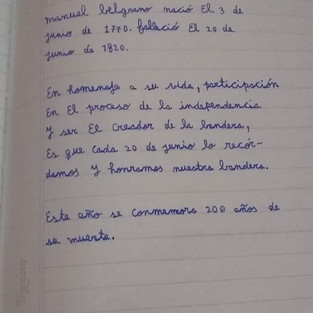 manuel belgrano nació El 3 de
junio de 1770. falleció El 20 de
junio de 1820.
En homenaje a su vida, participación
En El proceso de la independencia
y ser El Creador de la bandera,
Es que Cada 20 de junio lo recor-
damos y honramos nuestra bandera.
Este año se conmemora 200 años de
su muerte.